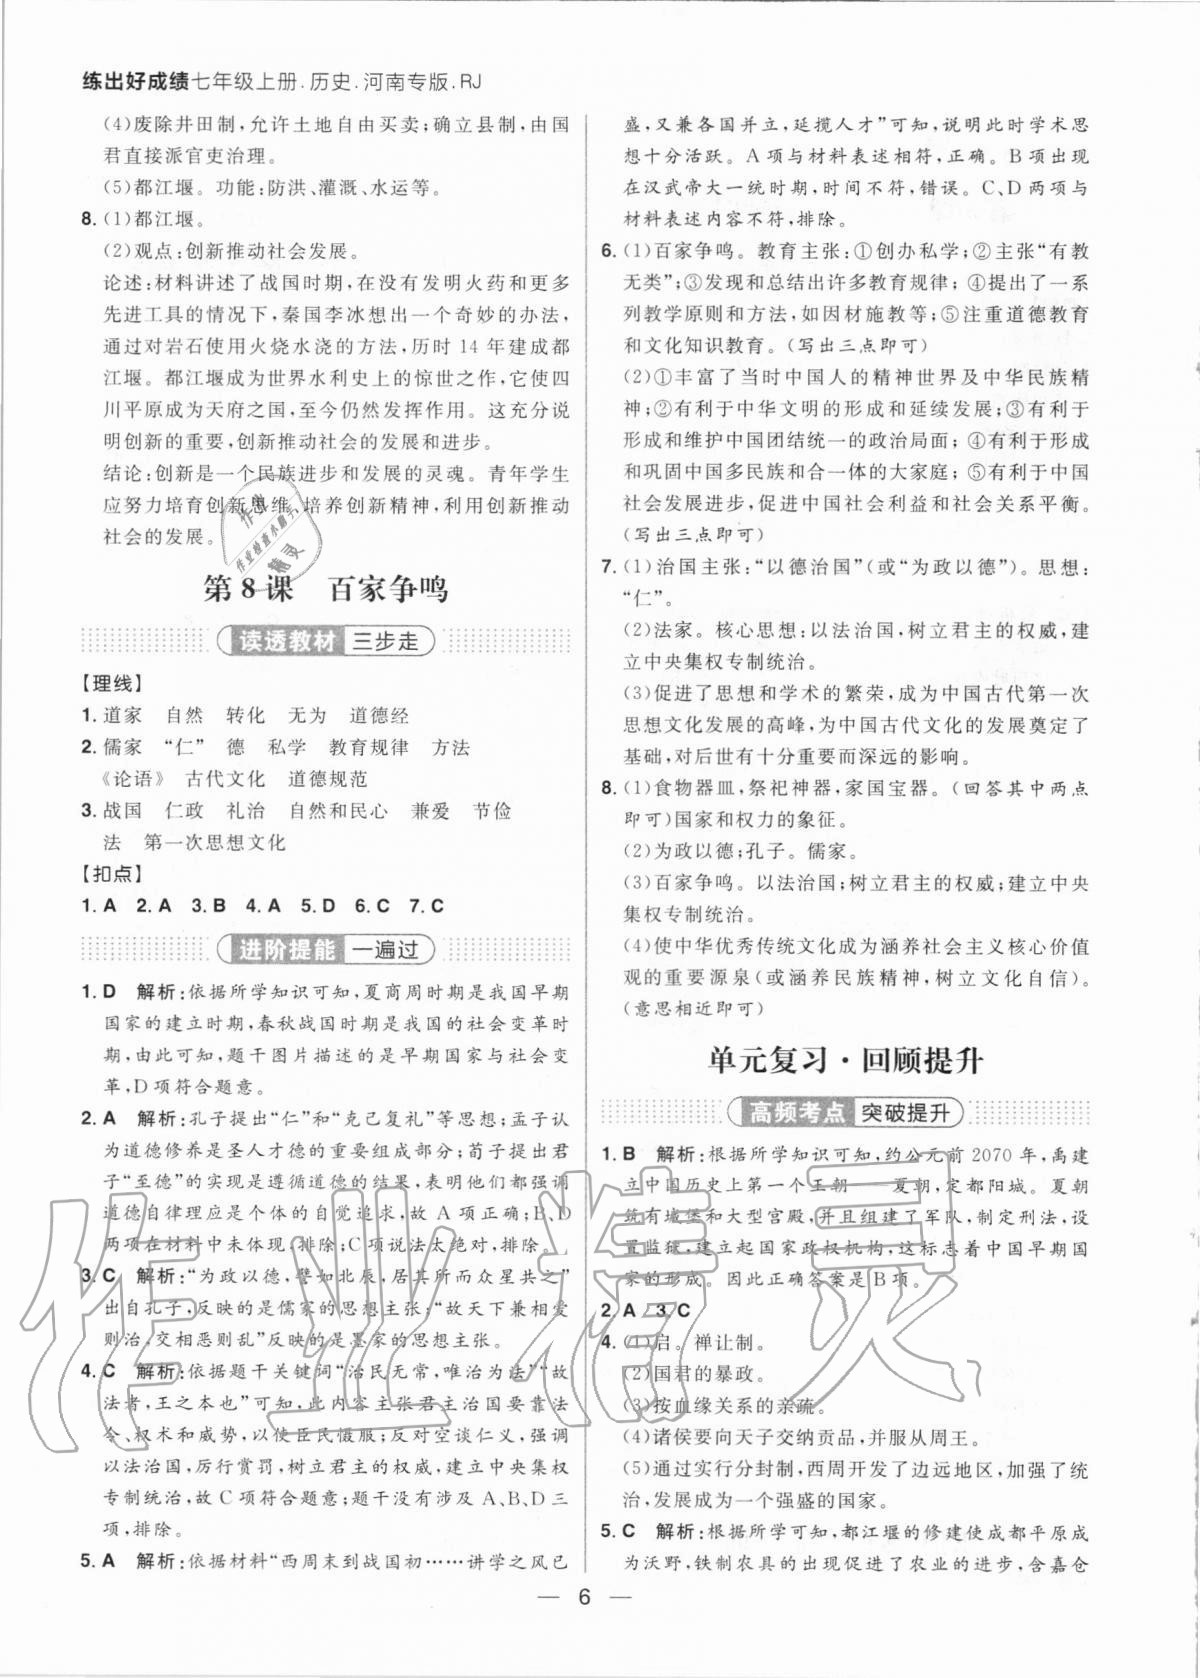 练出好成绩七年级上册.历史.河南专版.RJ
(4)废除井田制,允许土地自由买卖;确立县制,由国
君直接派官吏治理。
(5)都江堰。功能:防洪、灌溉、水运等。
8.(1)都江堰。
(2)观点:创新推动社会发展。
论述:材料讲述了战国时期,在没有发明火药和更多
先进工具的情况下,秦国李冰想出一个奇妙的办法,
通过对岩石使用火烧水浇的方法,历时 14 年建成都
江堰。都江堰成为世界水利史上的惊世之作,它使四
川平原成为天府之国,至今仍然发挥作用。这充分说
明创新的重要,创新推动社会的发展和进步。
结论:创新是一个民族进步和发展的灵魂。青年学生
应努力培育创新思维,培养创新精神,利用创新推动
社会的发展。
第 8 课 百家争鸣
读透教材 三步走
【理线】
1. 道家 自然 转化 无为 道德经
2. 儒家 “仁” 德 私学 教育规律 方法
《论语》 古代文化 道德规范
3. 战国 仁政 礼治 自然和民心 兼爱 节俭
法 第一次思想文化
【扣点】
1. A 2. A 3. B 4. A 5. D 6. C 7. C
进阶提能 一遍过
1. D 解析:依据所学知识可知,夏商周时期是我国早期
国家的建立时期,春秋战国时期是我国的社会变革时
期,由此可知,题干图片描述的是早期国家与社会变
革,D 项符合题意。
2. A 解析:孔子提出“仁”和“克己复礼”等思想;孟子认
为道德修养是圣人才德的重要组成部分;荀子提出君
子“至德”的实现是遵循道德的结果,表明他们都强调
道德自律理应是个体的自觉追求,故 A 项正确;B、D
两项在材料中未体现,排除;C 项说法太绝对,排除。
3. C 解析:“为政以德,譬如北辰,居其所而众星共之”
出自孔子,反映的是儒家的思想主张;“故天下兼相爱
则治,交相恶则乱”反映的是墨家的思想主张。
4. C 解析:依据题干关键词“治民无常,唯治为法”“故
法者,王之本也”可知,此内容主张君主治国要靠法
令、权术和威势,以使臣民慑服;反对空谈仁义,强调
以法治国,厉行赏罚,树立君主的权威,建立中央集权
专制统治,故 C 项符合题意;题干没有涉及 A、B、D 三
项,排除。
5. A 解析:依据材料“西周末到战国初……讲学之风已
盛,又兼各国并立,延揽人才”可知,说明此时学术思
想十分活跃。A 项与材料表述相符,正确。B 项出现
在汉武帝大一统时期,时间不符,错误。C、D 两项与
材料表述内容不符,排除。
6.(1)百家争鸣。教育主张:①创办私学;②主张“有教
无类”;③发现和总结出许多教育规律;④提出了一系
列教学原则和方法,如因材施教等;⑤注重道德教育
和文化知识教育。(写出三点即可)
(2)①丰富了当时中国人的精神世界及中华民族精
神;②有利于中华文明的形成和延续发展;③有利于
形成和维护中国团结统一的政治局面;④有利于形成
和巩固中国多民族和合一体的大家庭;⑤有利于中国
社会发展进步,促进中国社会利益和社会关系平衡。
(写出三点即可)
7.(1)治国主张:“以德治国”(或“为政以德”)。思想:
“仁”。
(2)法家。核心思想:以法治国,树立君主的权威,建
立中央集权专制统治。
(3)促进了思想和学术的繁荣,成为中国古代第一次
思想文化发展的高峰,为中国古代文化的发展奠定了
基础,对后世有十分重要而深远的影响。
8.(1)食物器皿,祭祀神器,家国宝器。(回答其中两点
即可)国家和权力的象征。
(2)为政以德;孔子。儒家。
(3)百家争鸣。以法治国;树立君主的权威;建立中央
集权专制统治。
(4)使中华优秀传统文化成为涵养社会主义核心价值
观的重要源泉(或涵养民族精神,树立文化自信)。
(意思相近即可)
单元复习·回顾提升
高频考点 突破提升
1. B 解析:根据所学知识可知,约公元前 2070 年,禹建
立中国历史上第一个王朝——夏朝,定都阳城。夏朝
筑有城堡和大型宫殿,并且组建了军队,制定刑法,设
置监狱,建立起国家政权机构,这标志着中国早期国
家的形成。因此正确答案是 B 项。
2. A 3. C
4.(1)启。禅让制。
(2)国君的暴政。
(3)按血缘关系的亲疏。
(4)诸侯要向天子交纳贡品,并服从周王。
(5)通过实行分封制,西周开发了边远地区,加强了统
治,发展成为一个强盛的国家。
5. C 解析:根据所学可知,都江堰的修建使成都平原成
为沃野,铁制农具的出现促进了农业的进步,含嘉仓
— 6 —
作业精灵